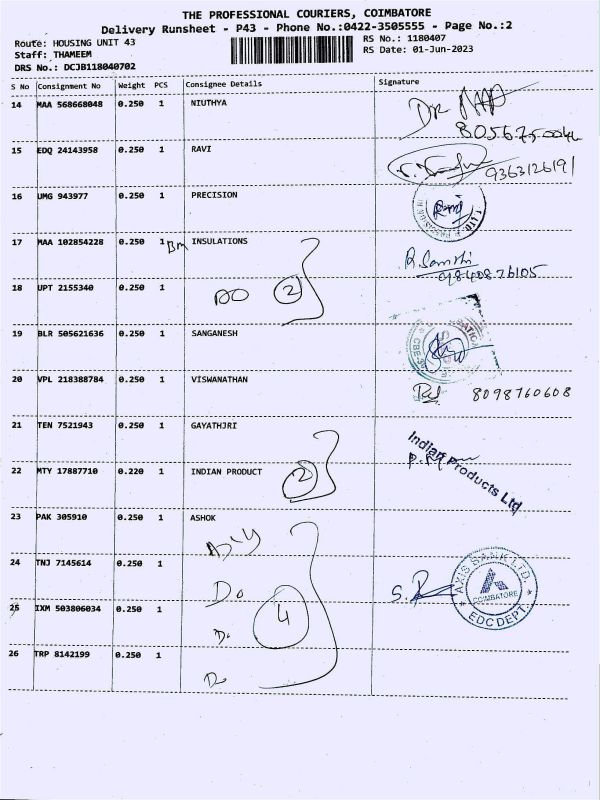 THE PROFESSIONAL COURIERS, COIMBATORE
Delivery Runsheet - P43 - Phone No.:0422-3505555 - Page No.:2
Route: HOUSING UNIT 43
RS No.: 1180407
Staff: THAMEEM
RS Date: 01-Jun-2023
DRS No.: DCJB118040702
S No Consignment No Weight PCS Consignee Details Signature
14 MAA 568668048 0.250 1 NIUTHYA
DR
15 EDQ 24143958 0.250 1 RAVI
9363126191
16 UMG 943977 0.250 1 PRECISION
17 MAA 102854228 0.250 1 Bm INSULATIONS
9840876105
18 UPT 2155340 0.250 1
DO 2
19 BLR 505621636 0.250 1 SANGANESH
20 VPL 218388784 0.250 1 VISWANATHAN
8098760608
21 TEN 7521943 0.250 1 GAYATHJRI
22 MTY 17887710 0.220 1 INDIAN PRODUCT
2
Indian Products Ltd
23 PAK 305910 0.250 1 ASHOK
24 TNJ 7145614 0.250 1
Do
AXIS BANK LTD.
COIMBATORE
EDC DEPT.
25 IXM 503806034 0.250 1
4
Do
26 TRP 8142199 0.250 1
Do